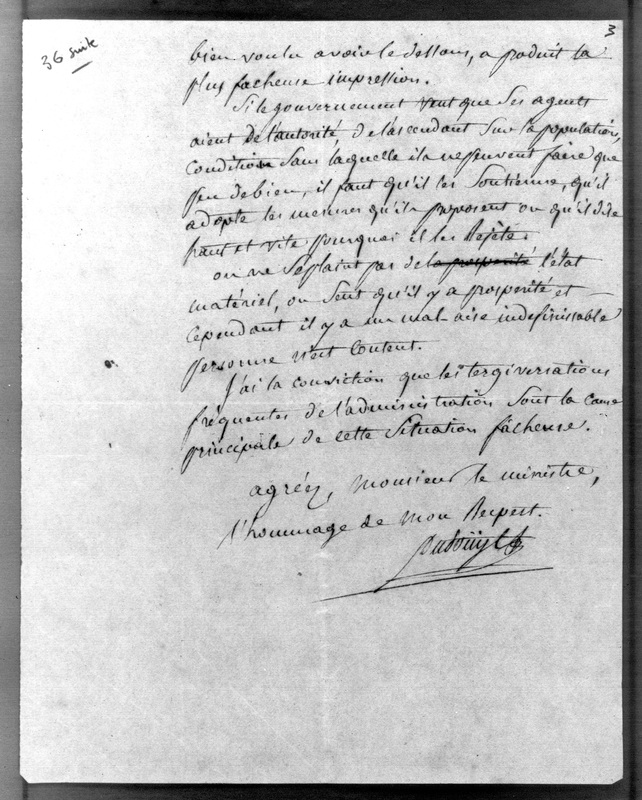 36 suite
bien voulu avoir le dessous, a produit la
plus facheuse impression.
Si le gouvernement veut que ses agents
aient de l'autorité, de l'ascendant sur la population,
condition sans laquelle ils ne peuvent faire que
peu de bien, il faut qu'il les soutienne, qu'il
adopte les mesures qu'ils proposent ou qu'il dise
haut et vite pourquoi il les rejète.
on ne se plaint pas de la prosperité l'état
matériel, on sent qu'il y a prosperité et
cependant il y a un mal-aise indefinissable
personne n'est content.
J'ai la conviction que les tergiversations
fréquentes de l'administration sont la cause
principale de cette situation facheuse.
agréez, Monsieur le ministre,
l'hommage de mon Respect.